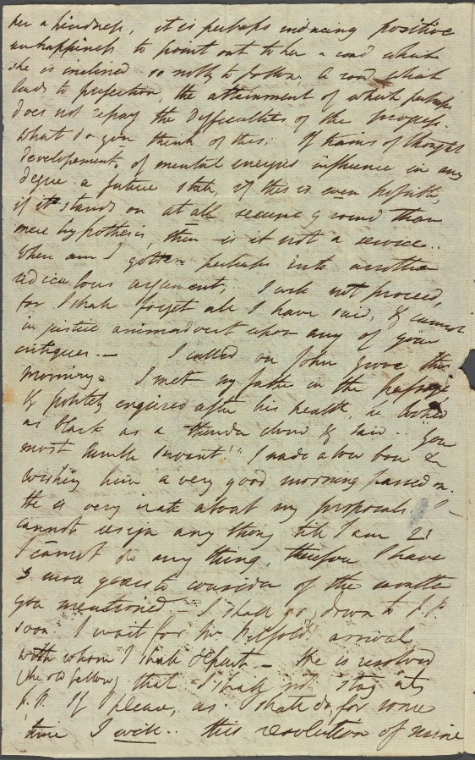 her a kindness, it is perhaps inducing positive
unhappiness to point out to her a road which
she is inclined so nobly to follow. A road which
leads to perfection the attainment of which perhaps
does not repay the difficulties of the progress.
What do you think of this: If trains of thought
developement of mental energies influence in any
degree a future state, if this is even possible,
if it stands on at all secure ground than
mere hypothesis, then is it not a service..
Where am I gotten perhaps into another
ridiculous argument; I will not proceed,
for I shall forget all I have said, & cannot
in justice animadvert upon any of your
critiques. — I called on John Grove this
morning. I met my father in the passage
& politely enquired after his health, he looked
as black as a thunder cloud & said.. You
most humble Servant!" I made a low bow &
wishing him a very good morning passed on.
He is very irate about my proposals. I
cannot resign any thing till I am 21
I cannot do any thing, therefore I have
3 more years to consider of the matter
you mentioned — I shall go down to F.P.
soon. I wait for Mr Pilfold's arrival
with whom I shall depart — He is resolved
(the old fellow) that I shall not stay at
F.P. If I please, as I shall do for some
time I will.. this resolution of mine